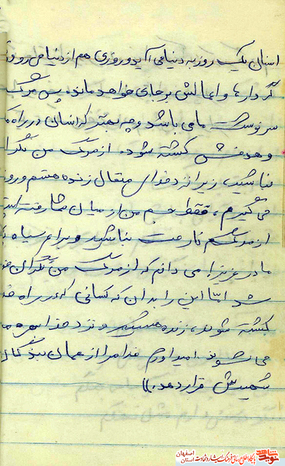 انسان یک روز به دنیا می آید و روزی هم از دنیا می رود و
کردارها و اعمالش بر جای خواهد ماند. پس مرگ
سرنوشت ما می باشد و چه بهتر که انسان در راه
و هدفش کشته شود. از مرگ من نگران
نباشید، زیرا نزد خدای متعال زنده هستم و روزی
می گیرم، فقط جسم من از میان شما رفته است
از مرگم ناراحت نباشید و برایم سیاه
مادر عزیزم! می دانم که از مرگ من نگران
شد امّا این را بدان که کسانی که در راه خدا
کشته شوند، زنده هستند و نزد خدا بهره
می شوند. امیدوارم خدا مرا از همان بندگان
شهیدش قرار دهد.))
اصفهان